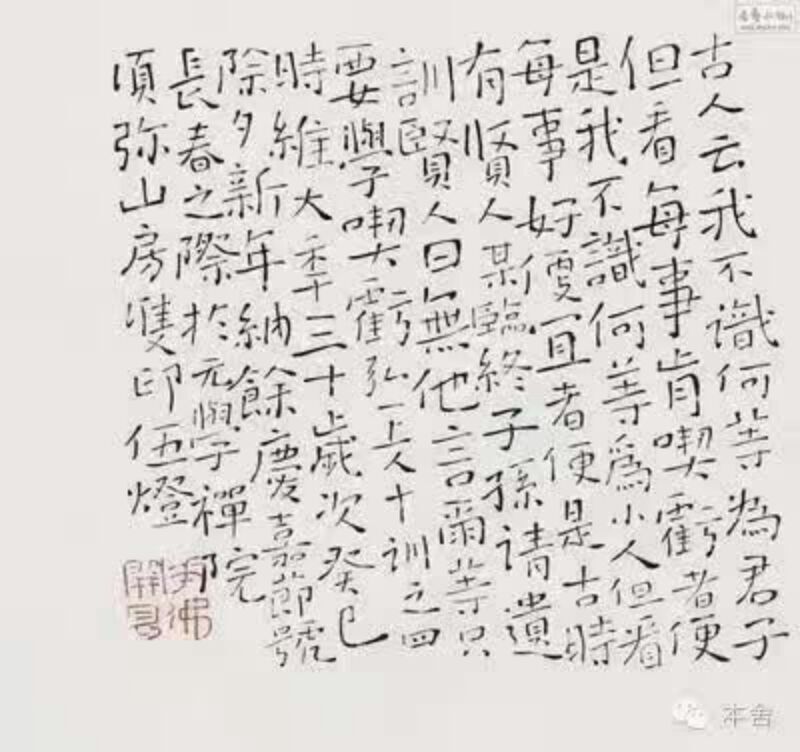 古人云我不識何等為君子
但看每事肯喫虧者便
是我不識何等爲小人但看
每事好便宜者便是古時
有賢人某臨終子孫請遺
訓賢人曰無他言爾等只
要學喫虧弘一上人十訓之四
時維大季三十歲次癸巳
除夕新年納餘慶嘉節號
長春之際於元學禪院
須弥山房雙印伍燈
本舍